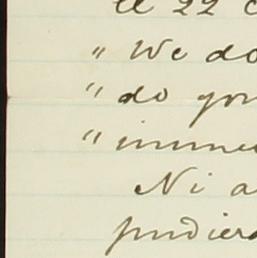 el 22 c
" We do
" do you
" imme
Ni a
pudiera